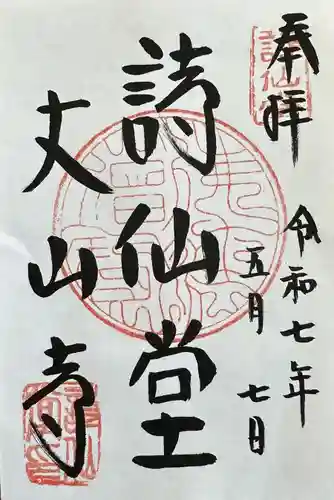 奉拝
令和七年
五月七日
詩仙堂
丈山寺